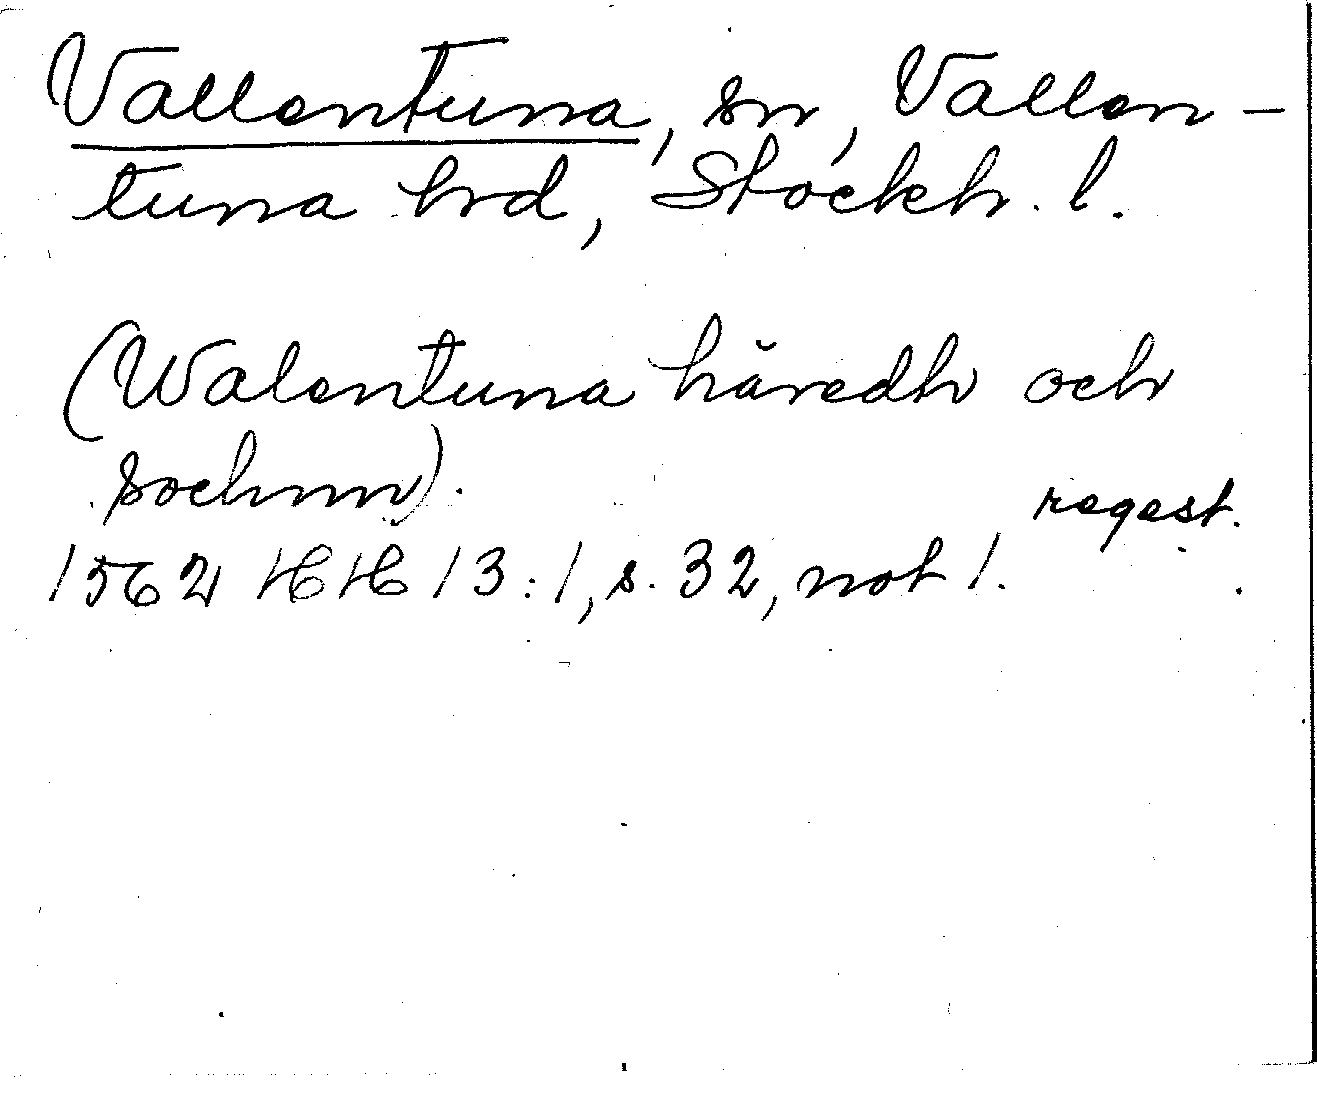 Vallentuna, sn, Vallen-
tuna hrd, Stockh. l.
(Walentuna häredh och
sochnn).
regest.
1562 HH 13:1, s. 32, not 1.